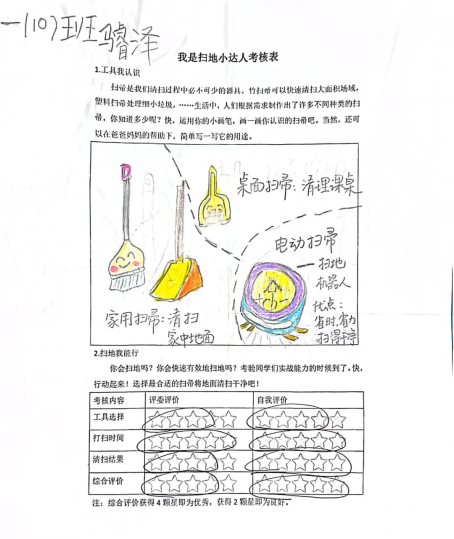 一(10)班骆睿泽
我是扫地小达人考核表
1.工具我认识
扫帚是我们清扫过程中必不可少的器具，竹扫帚可以快速清扫大面积场域，
塑料扫帚处理细小垃圾，……生活中，人们根据需求制作出了许多不同种类的扫
帚，你知道多少呢？快，运用你的小画笔，画一画你认识的扫帚吧，当然，还可
以在爸爸妈妈的帮助下，简单写一写它的用途。
桌面扫帚：清理课桌
电动扫帚
扫地
机器人
优点：
省时、省力
扫得干净
家用扫帚：清扫
家中地面
2.扫地我能行
你会扫地吗？你会快速有效地扫地吗？考验同学们实战能力的时候到了，快，
行动起来！选择最合适的扫帚将地面清扫干净吧！
考核内容 评委评价 自我评价
工具选择 ☆☆☆☆☆ ☆☆☆☆☆
打扫时间 ☆☆☆☆☆ ☆☆☆☆☆
清扫结果 ☆☆☆☆☆ ☆☆☆☆☆
综合评价 ☆☆☆☆☆ ☆☆☆☆☆
注：综合评价获得 4 颗星即为优秀，获得 2 颗星即为良好。